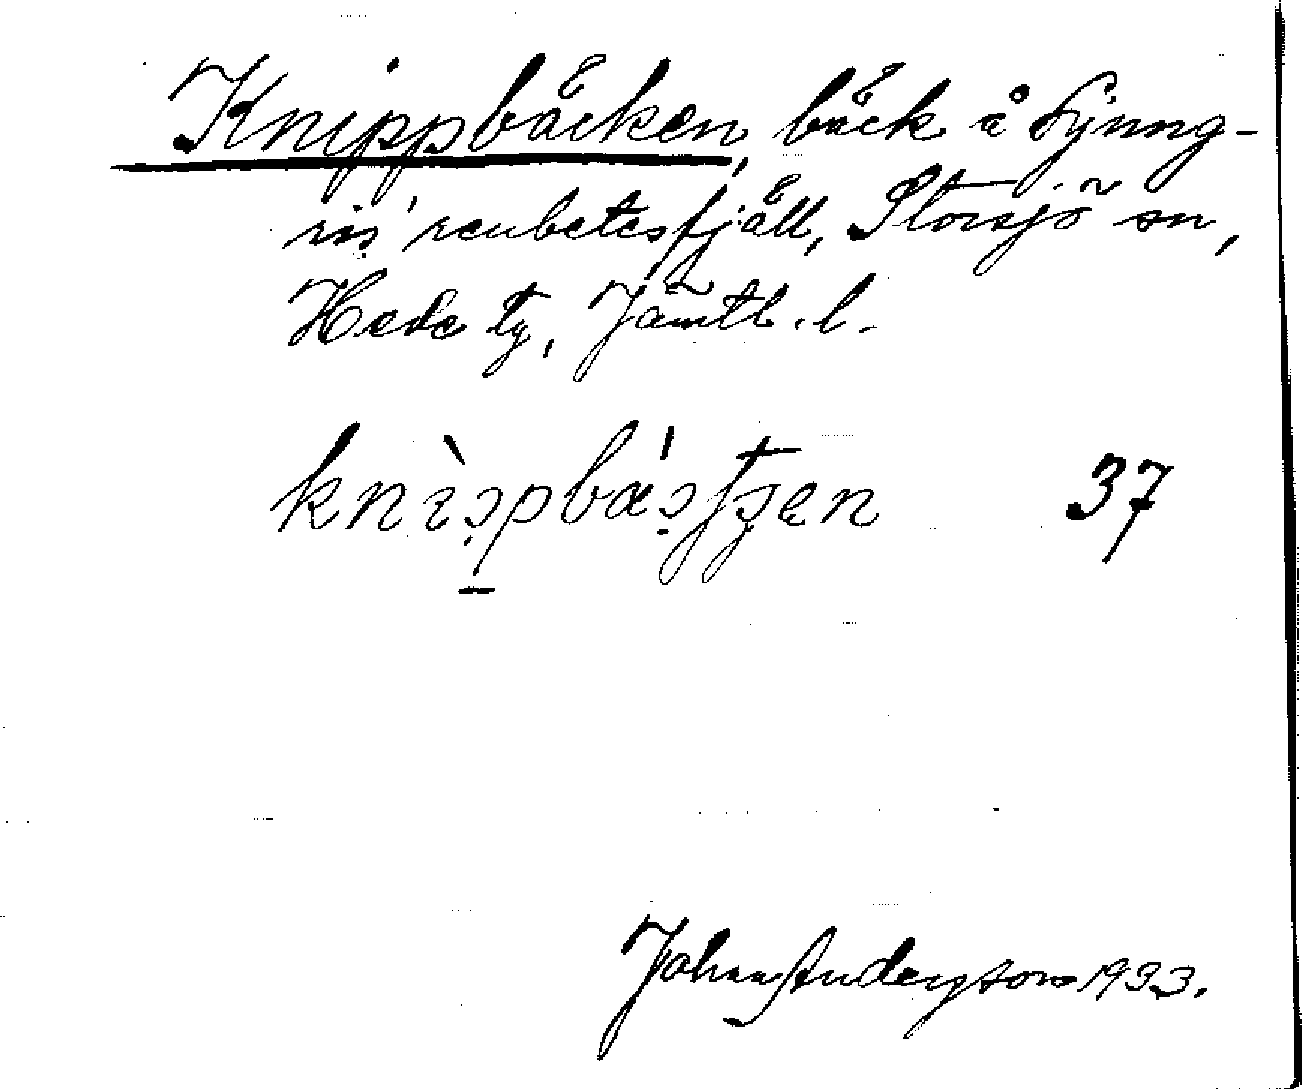 Knippbäcken, bäck å Ljung-
ris' renbetesfjäll, Storsjö sn,
Hede tg, Jämtl. l.
37
John Anderson 1933.